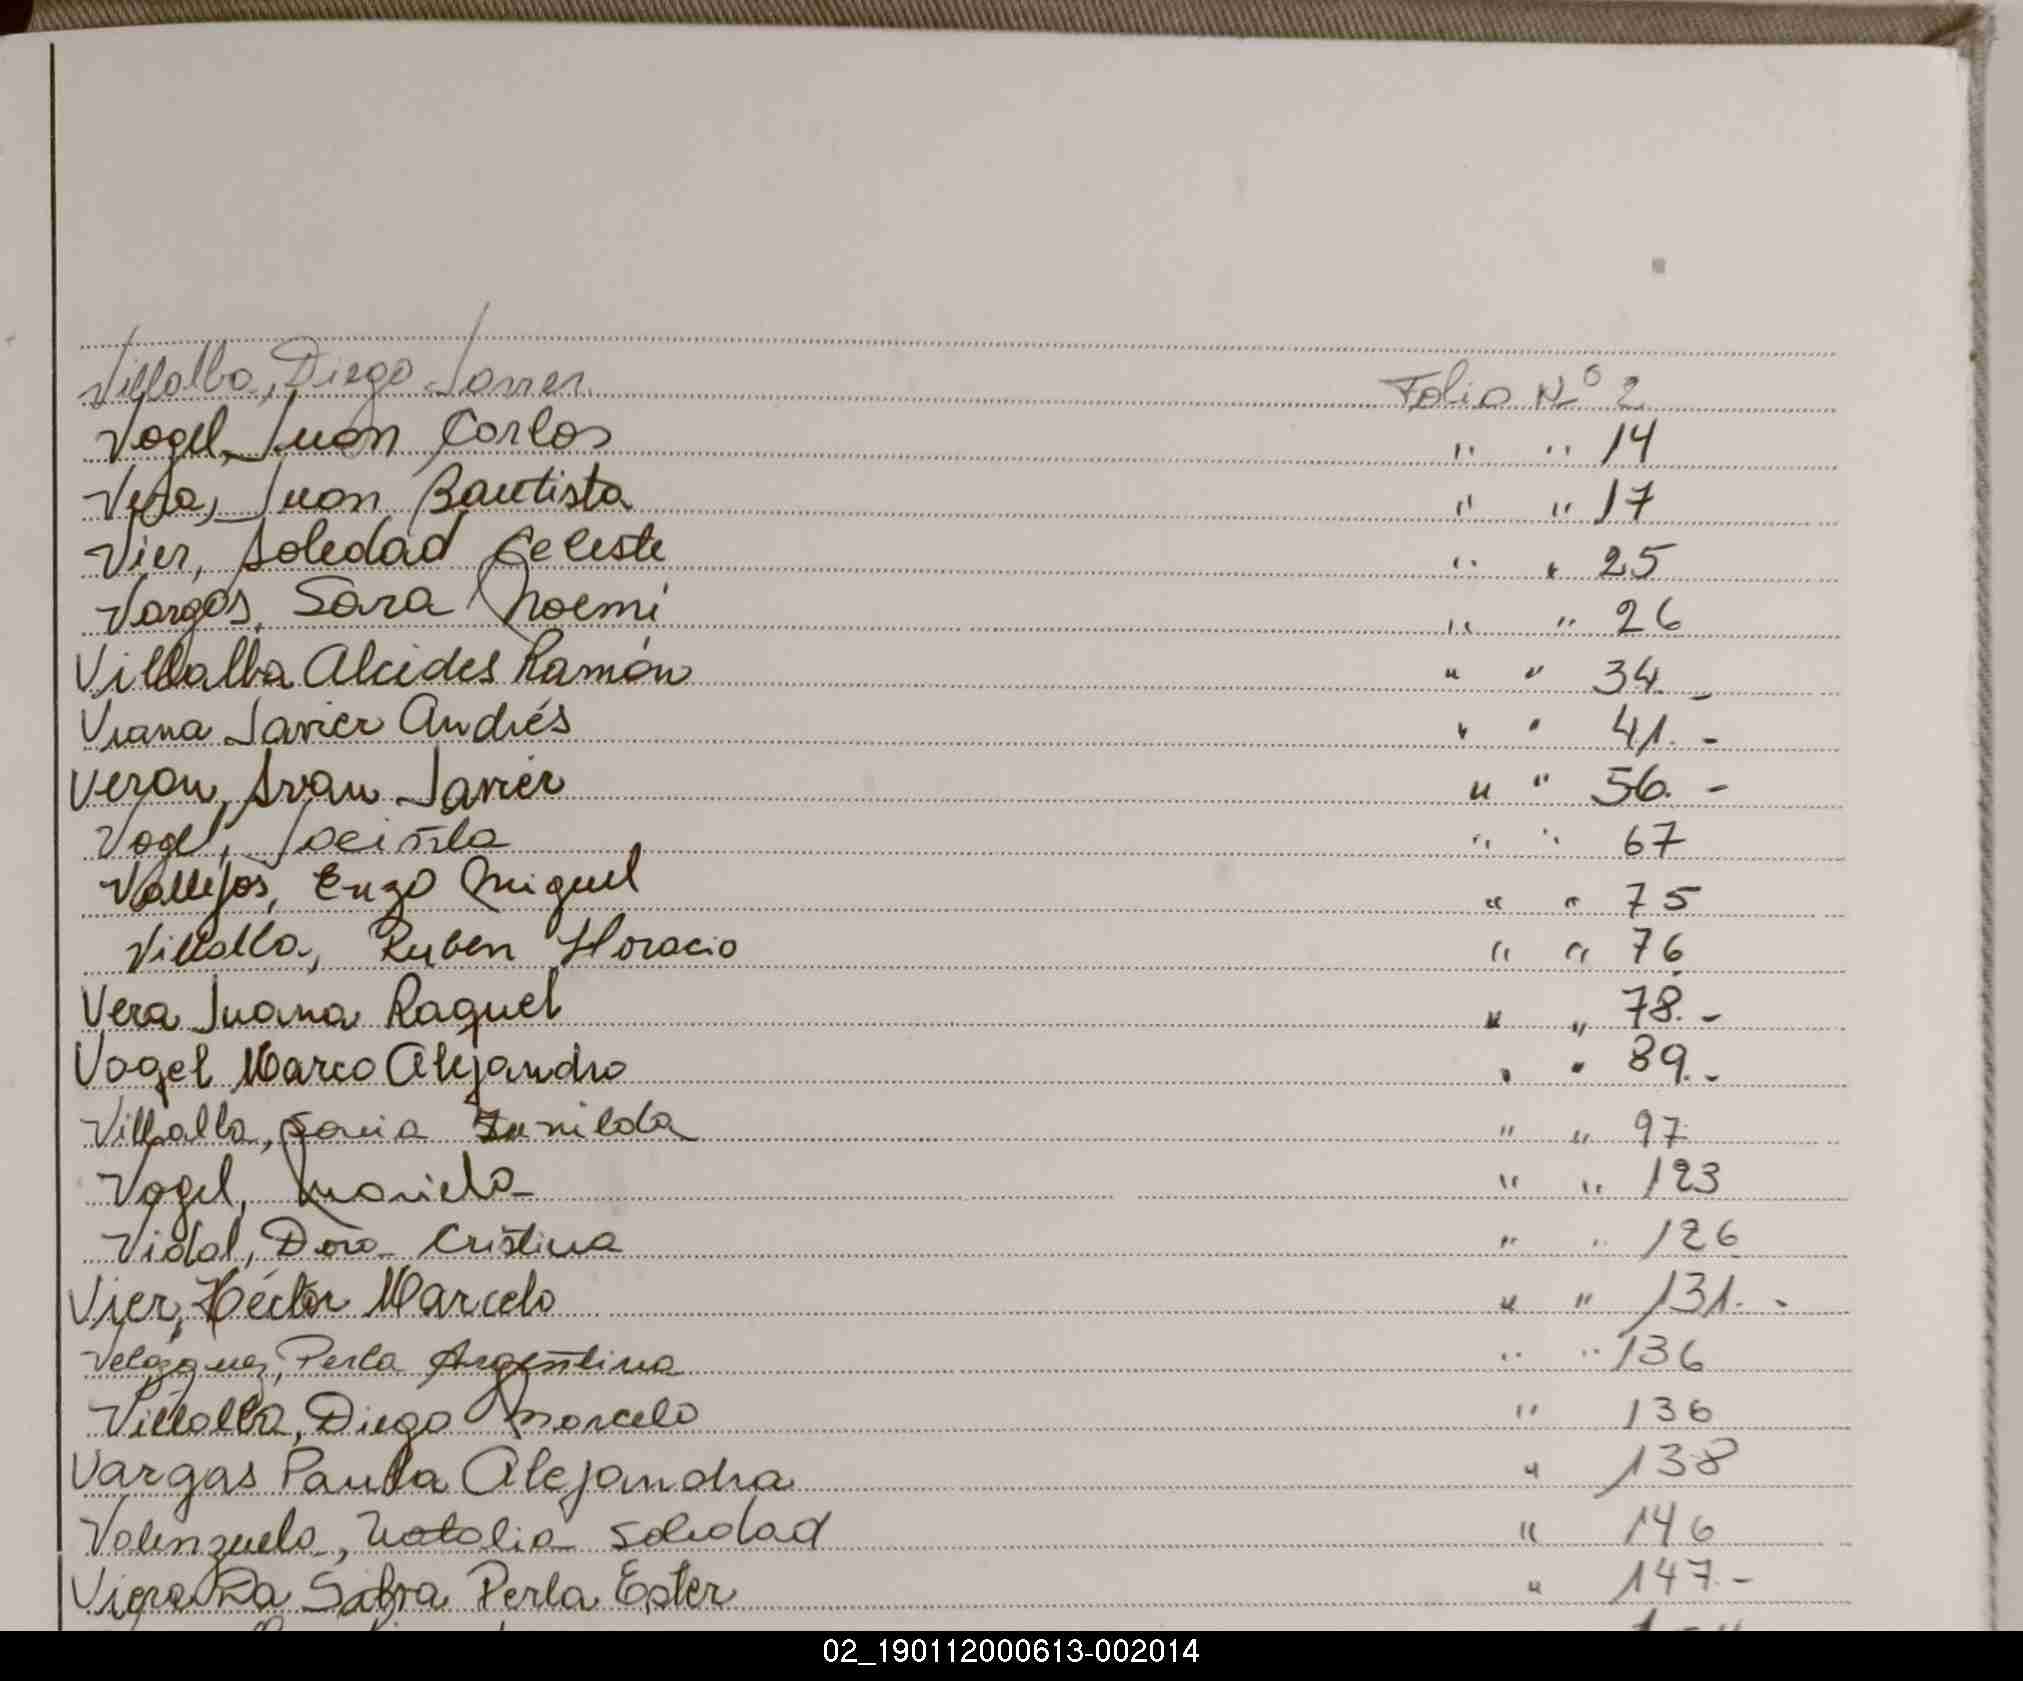 Villalba, Diego Javier Folio Nº 2
Vogel, Juan Carlos " " 14
Vera, Juan Bautista " " 17
Vier, Soledad Celeste " " 25
Vargas, Sara Noemi " " 26
Villalba Alcides Ramón " " 34.-
Viana Javier Andrés " " 41.-
Veron, Ivan Javier " " 56.-
Vogel, " " 67
Vallejos, Enzo Miguel " " 75
Villalba, Ruben Horacio " " 76
Vera Juana Raquel " " 78.-
Vogel Marco Alejandro " " 89.-
Villalba, Sonia Zunilda " " 97
Vogel, Mariela " " 123
Vidal, Dora Cristina " " 126
Vier, Héctor Marcelo " " 131.-
Velazquez, Perla Argentina " " 136
Villalba, Diego Marcelo " 136
Vargas Paula Alejandra " 138
Valenzuela, Natalia Soledad " 146
Viera Da Silva Perla Ester " 147.-
02_190112000613-002014